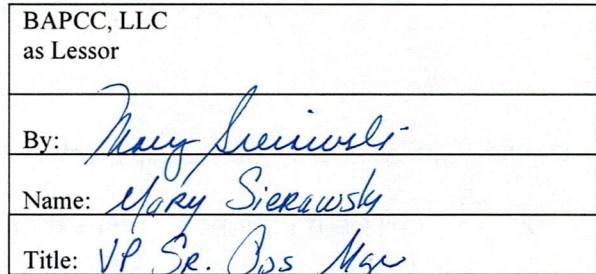 BAPCC, LLC
as Lessor
By: Mary Sierawski
Name: Mary Sierawsky
Title: VP Sr. Ops Mgr